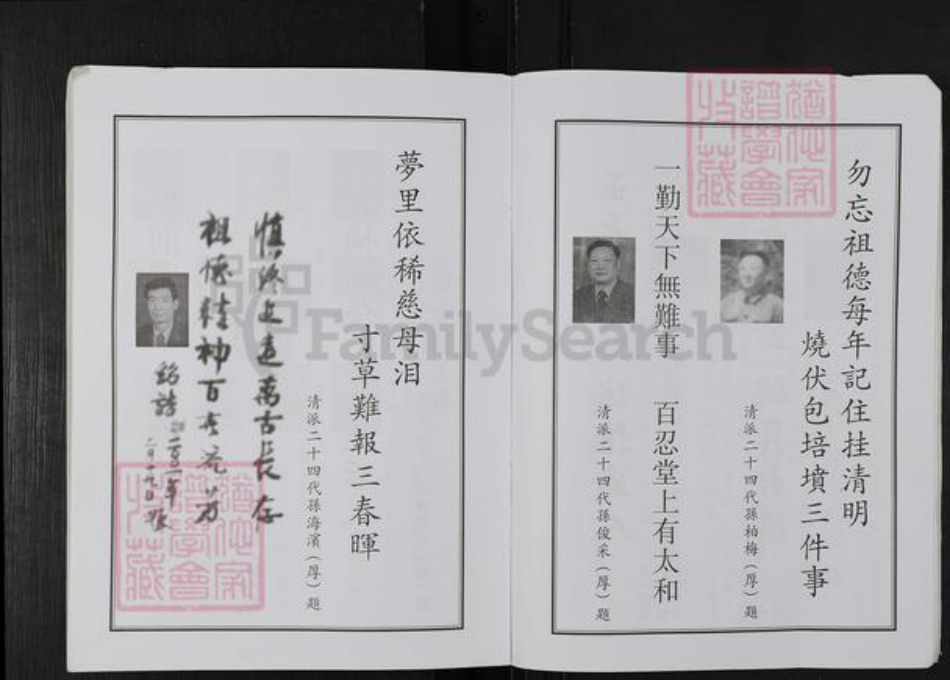 勿忘祖德每年記住挂清明
燒伏包培墳三件事
清派二十四代孫柏梅（厚）題
一勤天下無難事 百忍堂上有太和
清派二十四代孫俊采（厚）題
夢里依稀慈母泪
寸草難報三春暉
清派二十四代孫海濱（厚）題
慎終追遠萬古長存
祖德精神百世流芳
二〇〇一年
二月十九日
FamilySearch
譜學會
收藏
譜學會
收藏